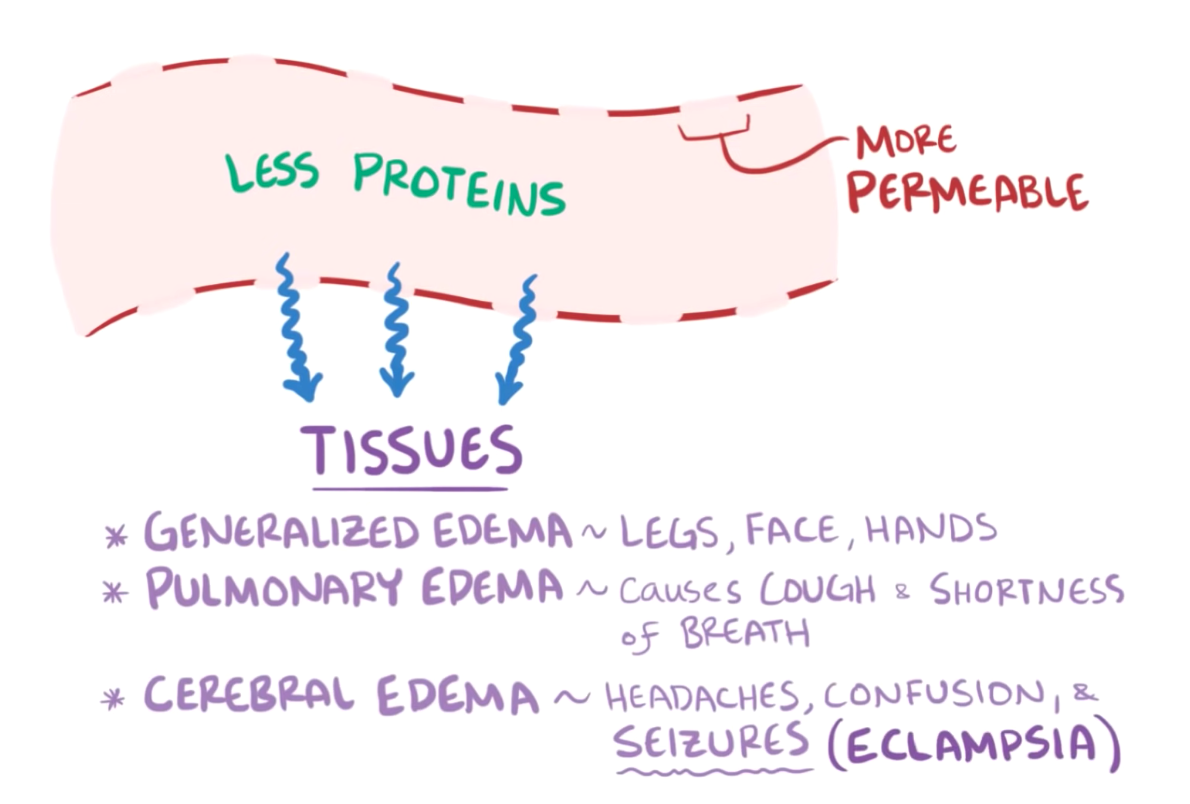 LESS PROTEINS
MORE
PERMEABLE
TISSUES
* GENERALIZED EDEMA ~ LEGS, FACE, HANDS
* PULMONARY EDEMA ~ CAUSES COUGH & SHORTNESS
of BREATH
* CEREBRAL EDEMA ~ HEADACHES, CONFUSION, &
SEIZURES (ECLAMPSIA)